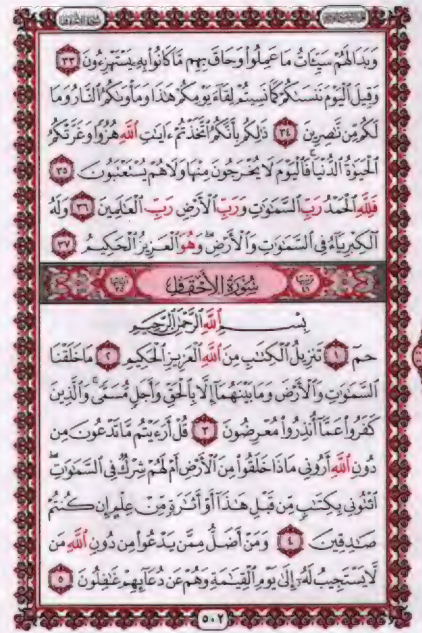 وَبَدَا لَهُمْ سَيِّـَٔاتُ مَا عَمِلُوا۟ وَحَاقَ بِهِم مَّا كَانُوا۟ بِهِۦ يَسْتَهْزِءُونَ ٣٣
وَقِيلَ ٱلْيَوْمَ نَنسَىٰكُمْ كَمَا نَسِيتُمْ لِقَآءَ يَوْمِكُمْ هَـٰذَا وَمَأْوَىٰكُمُ ٱلنَّارُ وَمَا
لَكُم مِّن نَّـٰصِرِينَ ٣٤ ذَٰلِكُم بِأَنَّكُمُ ٱتَّخَذْتُمْ ءَايَـٰتِ ٱللَّهِ هُزُوًا وَغَرَّتْكُمُ
ٱلْحَيَوٰةُ ٱلدُّنْيَا ۚ فَٱلْيَوْمَ لَا يُخْرَجُونَ مِنْهَا وَلَا هُمْ يُسْتَعْتَبُونَ ٣٥
فَلِلَّهِ ٱلْحَمْدُ رَبِّ ٱلسَّمَـٰوَٰتِ وَرَبِّ ٱلْأَرْضِ رَبِّ ٱلْعَـٰلَمِينَ ٣٦ وَلَهُ
ٱلْكِبْرِيَآءُ فِى ٱلسَّمَـٰوَٰتِ وَٱلْأَرْضِ ۖ وَهُوَ ٱلْعَزِيزُ ٱلْحَكِيمُ ٣٧
سُورَةُ الأَحْقَافِ
بِسْمِ ٱللَّهِ ٱلرَّحْمَـٰنِ ٱلرَّحِيمِ
حمٓ ١ تَنزِيلُ ٱلْكِتَـٰبِ مِنَ ٱللَّهِ ٱلْعَزِيزِ ٱلْحَكِيمِ ٢ مَا خَلَقْنَا
ٱلسَّمَـٰوَٰتِ وَٱلْأَرْضَ وَمَا بَيْنَهُمَآ إِلَّا بِٱلْحَقِّ وَأَجَلٍ مُّسَمًّى ۚ وَٱلَّذِينَ
كَفَرُوا۟ عَمَّآ أُنذِرُوا۟ مُعْرِضُونَ ٣ قُلْ أَرَءَيْتُم مَّا تَدْعُونَ مِن
دُونِ ٱللَّهِ أَرُونِى مَاذَا خَلَقُوا۟ مِنَ ٱلْأَرْضِ أَمْ لَهُمْ شِرْكٌ فِى ٱلسَّمَـٰوَٰتِ ۖ
ٱئْتُونِى بِكِتَـٰبٍ مِّن قَبْلِ هَـٰذَآ أَوْ أَثَـٰرَةٍ مِّنْ عِلْمٍ إِن كُنتُمْ
صَـٰدِقِينَ ٤ وَمَنْ أَضَلُّ مِمَّن يَدْعُوا۟ مِن دُونِ ٱللَّهِ مَن
لَّا يَسْتَجِيبُ لَهُۥٓ إِلَىٰ يَوْمِ ٱلْقِيَـٰمَةِ وَهُمْ عَن دُعَآئِهِمْ غَـٰفِلُونَ ٥
٥٠٢